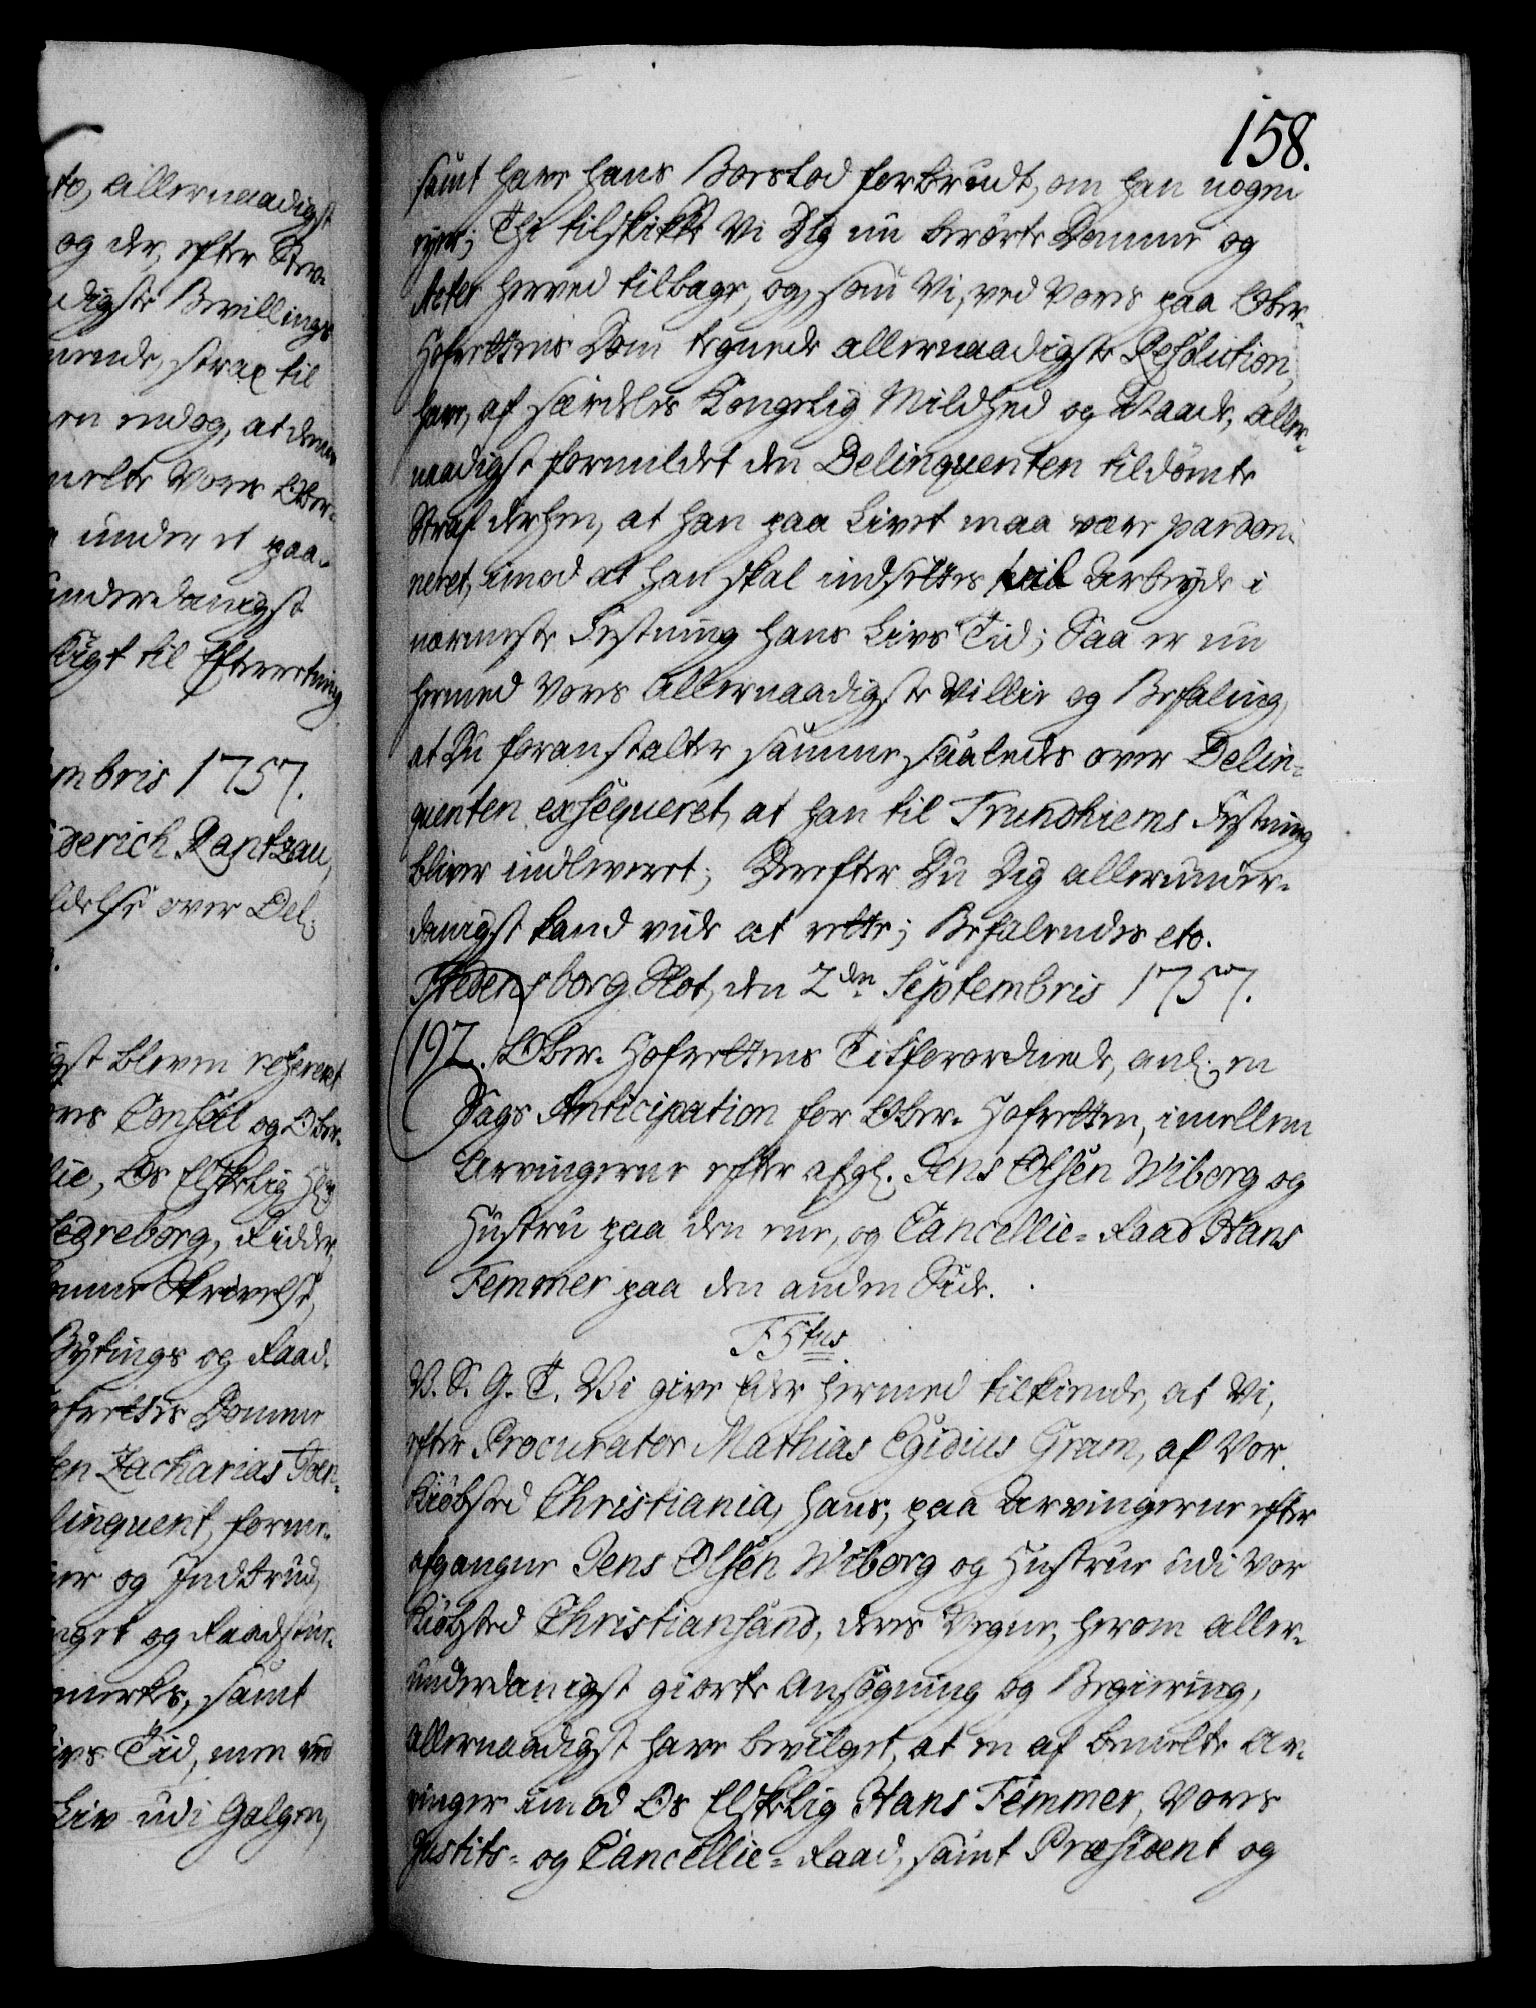 to, allernaadigst
og der, efter Ster¬
digste Bevillings
mende, strax til
en endog, at denne
melte Vores Ober¬
under et paa¬
underdanigst
ligt til Efterretning
mbris 1757.
iderich Rantzau,
ldelse over Del¬
gst bleven refereret
res Conseil og Ober¬
lie, Os Elskelig Hr
edreborg, Ridder,
Bytings og Raad¬
ofrettes Domme
en Zacharias Toen¬
linquent, forme¬
er og Indbrud,
nget og Raadstue¬
merke, samt
ivs Tid, men ved
Liv udi Galgen,
158.
samt have hans Boeslod forbrudt, om han nogen
ejer; Thi tilskikke Vi Dig nu berørte Domme og
Acter herved tilbage, og, som Vi, ved Vores paa Ober¬
Hofrettens Dom tegnede allernaadigste Resolution,
have, af særdeles Kongelig Mildhed og Naade, aller¬
naadigst formildet den Delinquenten tildømte
Straf derhen, at han paa Livet maa være pardon¬
neret, imod at han skal indsettes til Arbeyde i
nærmeste Festning hans Livs Tid; Saa er nu
hermed Vores allernaadigste Villie og Befaling,
at Du foranstalter samme saaledes over Delin¬
quenten exseqveret, at han til Trundhiems Festning
bliver indleveret; Derefter Du Dig allerunder¬
danigst kand vide at rette; Befalendes etc.
Fredensborg Slot, den 2den Septembris 1757.
197. Ober-Hofrettens Tilforordnede, anl: en
Sags Anticipation for Ober-Hofretten, imellem
Arvingerne efter afg: Jens Olsen Wiborg og
Hustru paa den ene, og Cancellie-Raad Hans
Femmer paa den anden Side.
F5tus.
V. S. G. T. Vi give Eder hermed tilkiende, at Vi,
efter Procurator Mathias Egidius Gram, af Vor
Kiøbsted Christiania, hans, paa Arvingerne efter
afgangne Jens Olsen Wiborg og Hustrue udi Vor
Kiøbsted Christiansand, deres Vegne, herom aller¬
underdanigst giorte Ansøgning og Begiering,
allernaadigst have bevilget, at en af bemelte Ar¬
vinger imod Os Elskelig Hans Femmer, Vores
Justits- og Cancellie-Raad, samt Præsident og